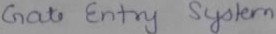 Gate Entry System